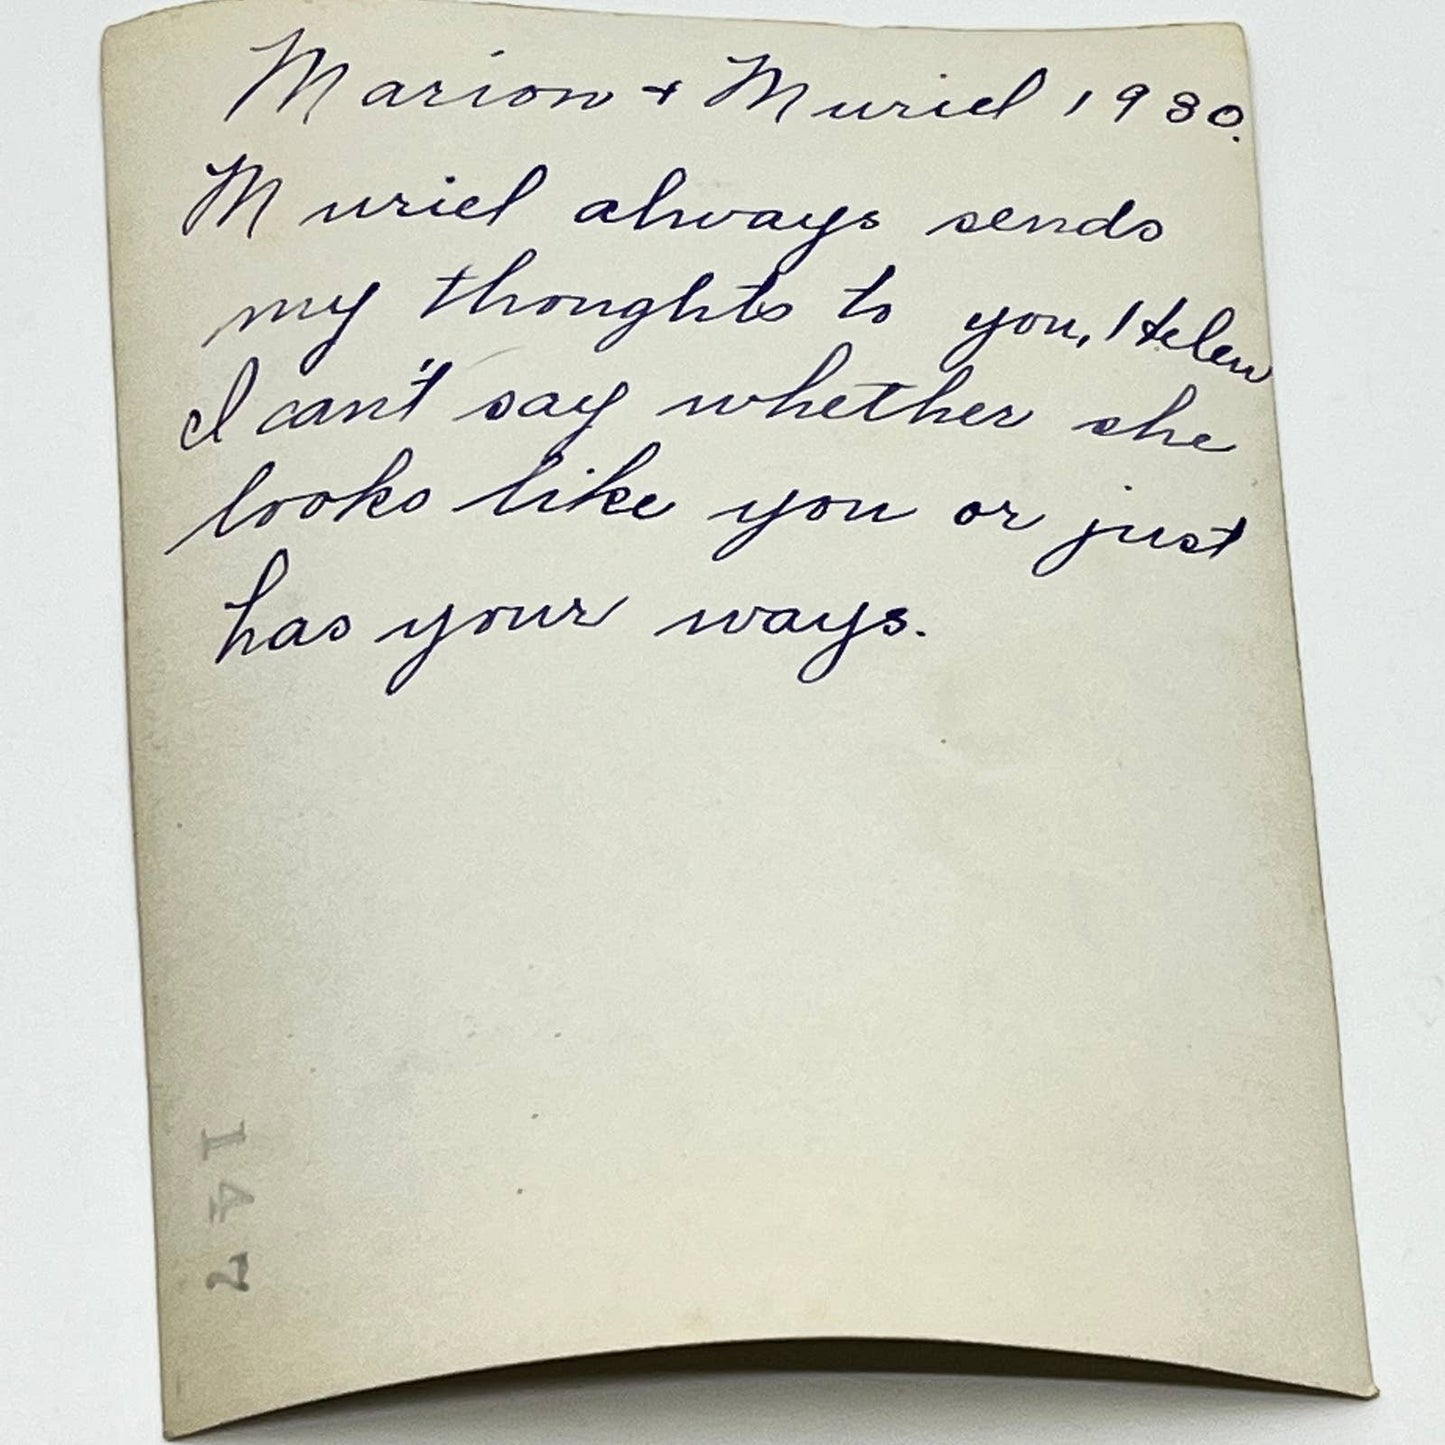 Marion + Muriel 1930.
Muriel always sends
my thoughts to you, Helen
I can't say whether she
looks like you or just
has your ways.